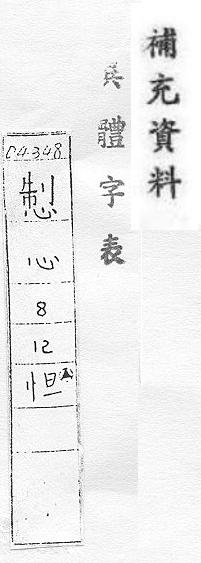 補充資料
異體字表
C04348
心
8
12
怛